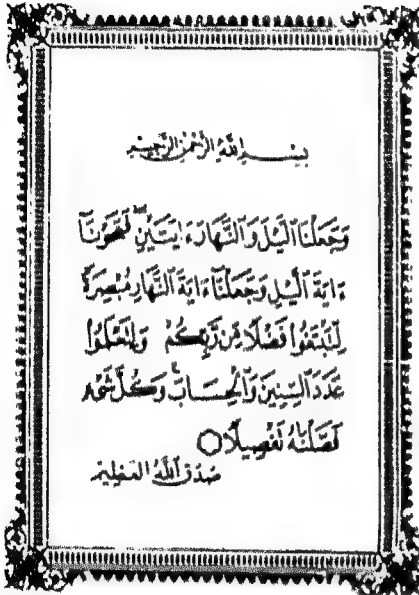 بِسْمِ اللَّهِ الرَّحْمَٰنِ الرَّحِيمِ
وَجَعَلْنَا ٱلَّيْلَ وَٱلنَّهَارَ ءَايَتَيْنِۖ فَمَحَوْنَآ
ءَايَةَ ٱلَّيْلِ وَجَعَلْنَآ ءَايَةَ ٱلنَّهَارِ مُبْصِرَةً
لِّتَبْتَغُوا۟ فَضْلًا مِّن رَّبِّكُمْ وَلِتَعْلَمُوا۟
عَدَدَ ٱلسِّنِينَ وَٱلْحِسَابَۚ وَكُلَّ شَىْءٍ
فَصَّلْنَٰهُ تَفْصِيلًا
صدق ٱللَّهُ العظيم